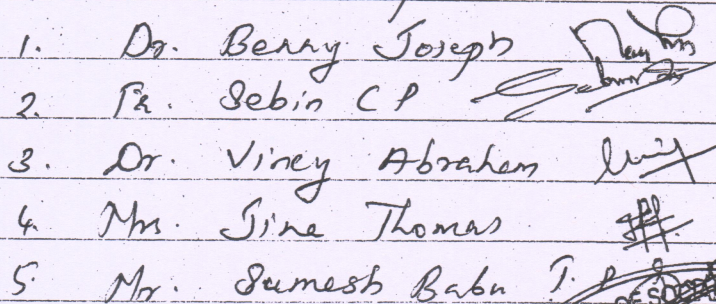 1. Dr. Benny Joseph
2. Fr. Sebin C P
3. Dr. Viney Abraham
4. Mrs. Jine Thomas
5. Mr. Sumesh Babu T.